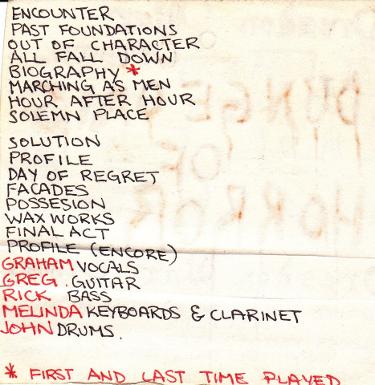 ENCOUNTER
PAST FOUNDATIONS
OUT OF CHARACTER
ALL FALL DOWN
BIOGRAPHY *
MARCHING AS MEN
HOUR AFTER HOUR
SOLEMN PLACE
SOLUTION
PROFILE
DAY OF REGRET
FACADES
POSSESION
WAXWORKS
FINAL ACT
PROFILE (ENCORE)
GRAHAM VOCALS
GREG . GUITAR
RICK BASS
MELINDA KEYBOARDS & CLARINET
JOHN DRUMS.
* FIRST AND LAST TIME PLAYED